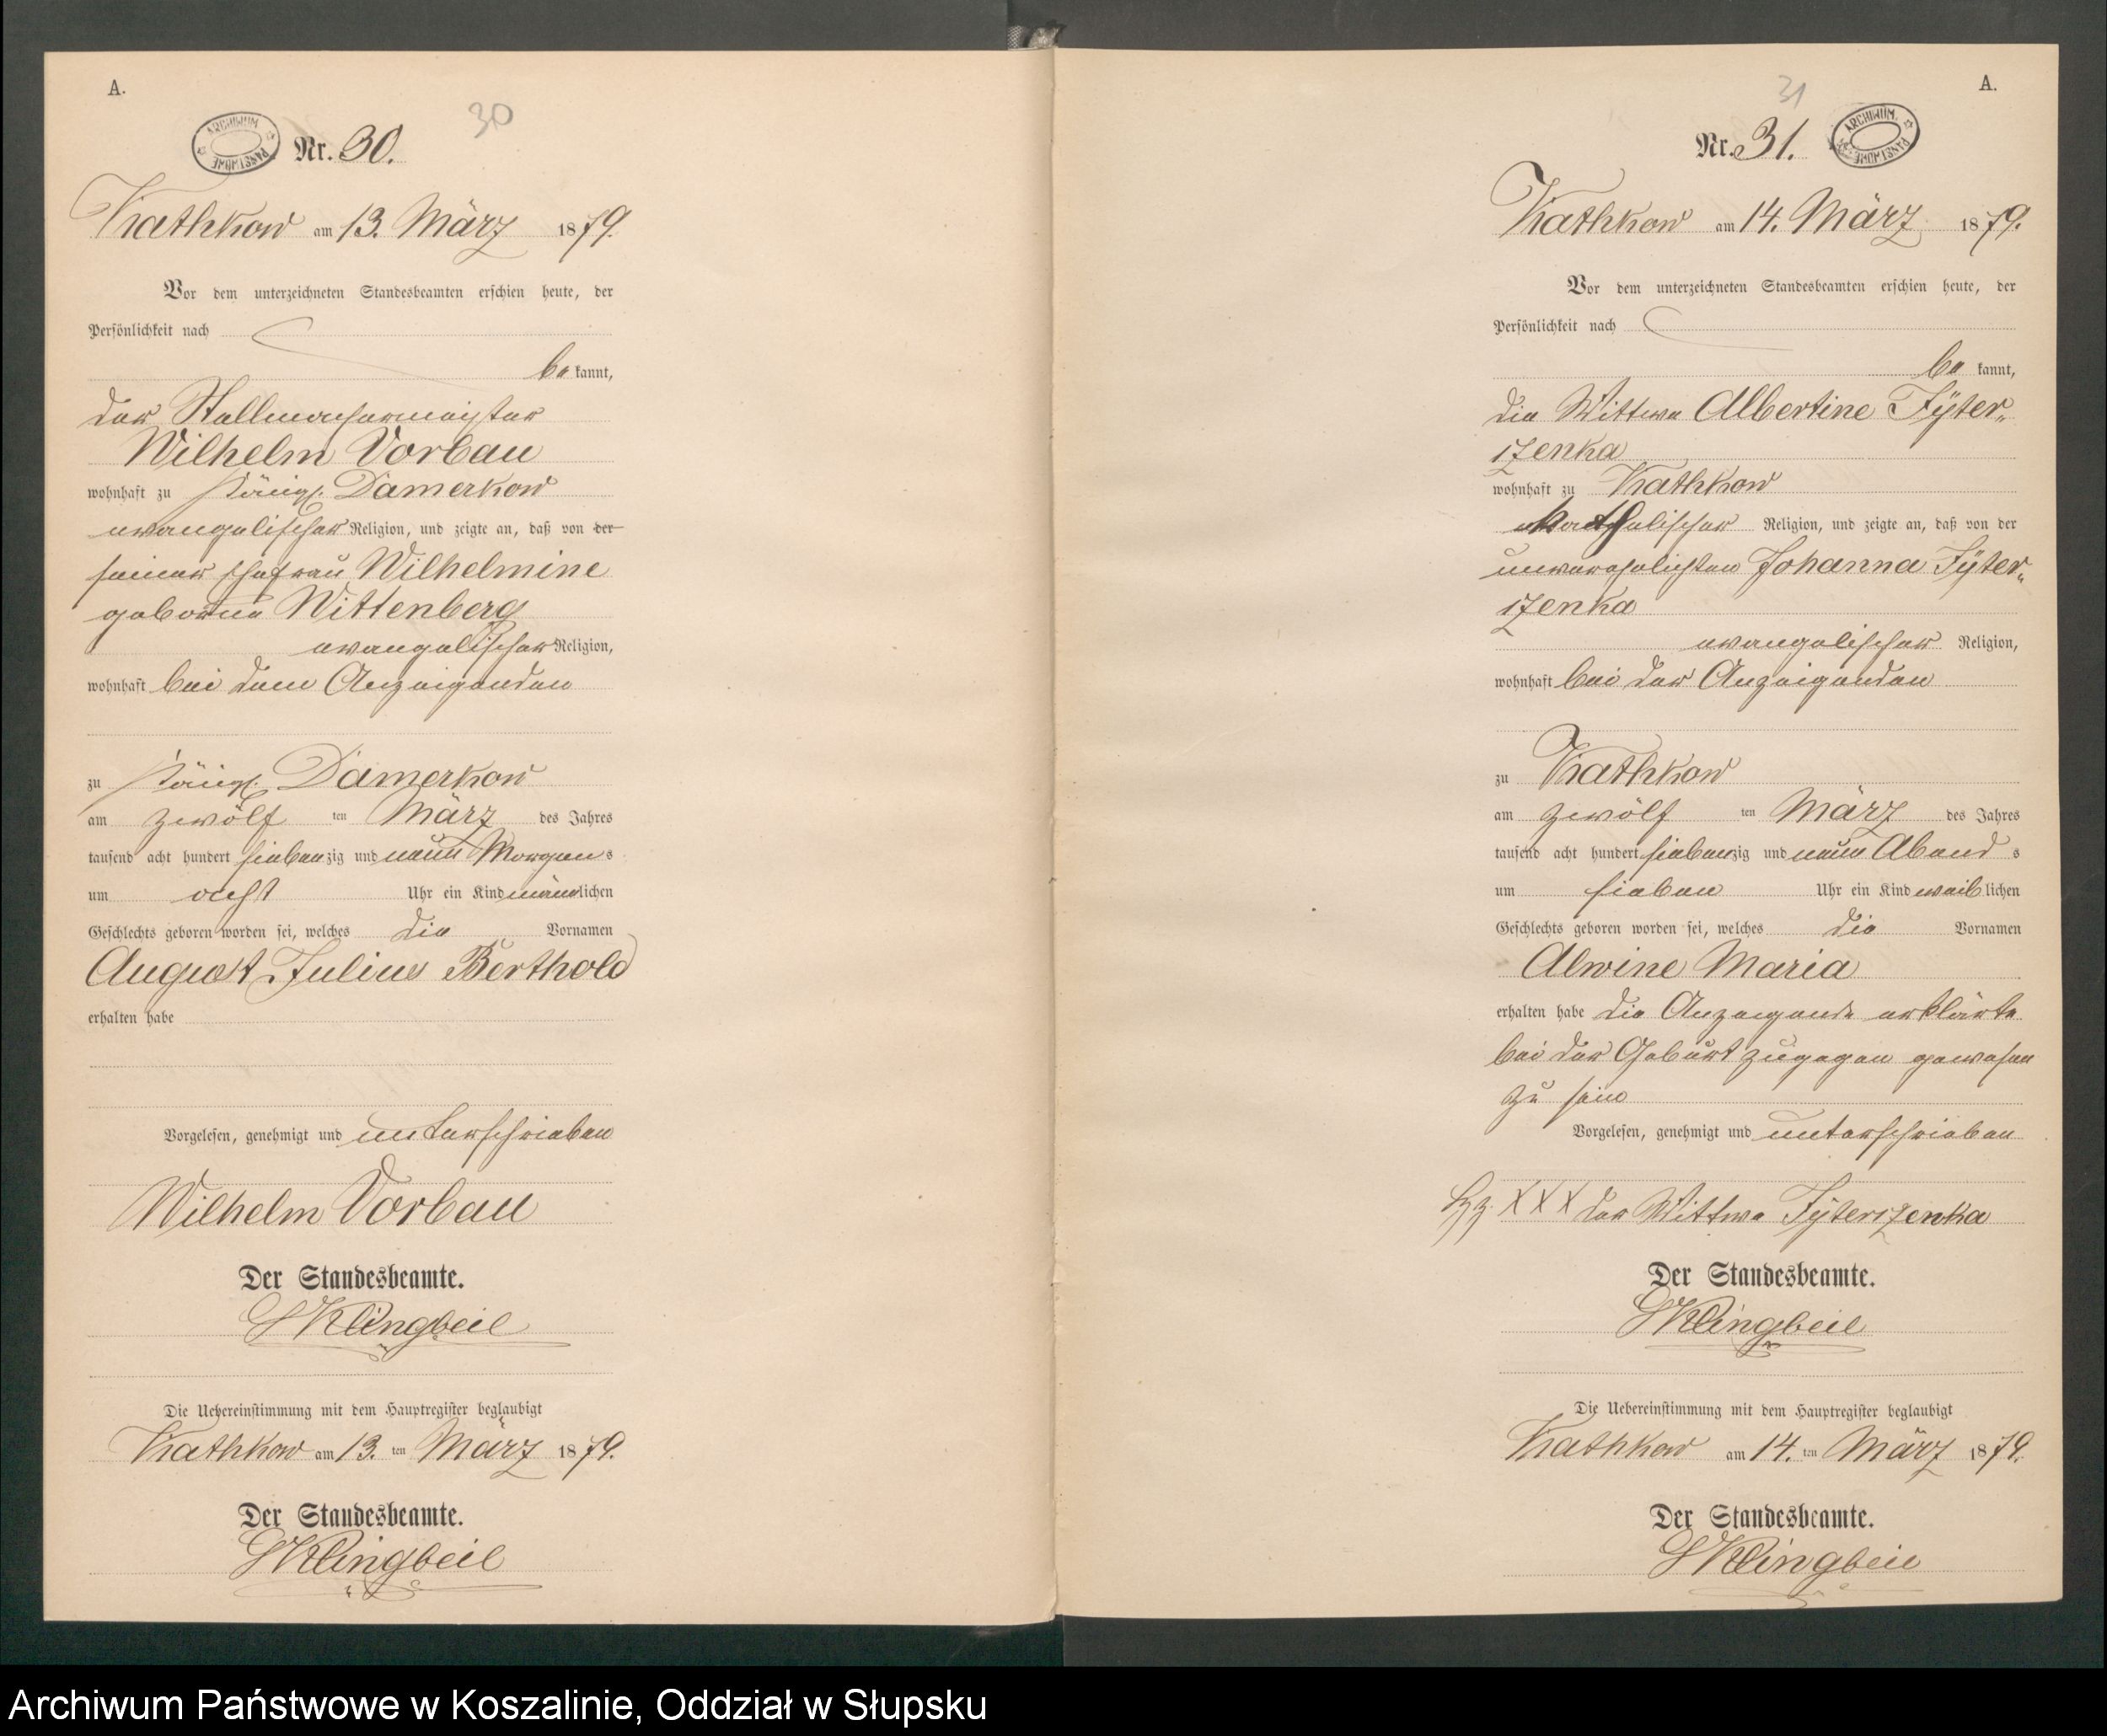 A.
ARCHIWUM PAŃSTWOWE
Nr. 30.
30
Kathkow am 13. März 1879.
Vor dem unterzeichneten Standesbeamten erschien heute, der
Persönlichkeit nach
be kannt,
der Stellmachermeister
Wilhelm Vorbau
wohnhaft zu Königl. Damerkow
evangelischer Religion, und zeigte an, daß von der
seiner Ehefrau Wilhelmine
geborene Wittenberg
evangelischer Religion,
wohnhaft bei dem Anzeigenden
zu Königl. Damerkow
am zwölf ten März des Jahres
tausend acht hundert siebenzig und neun Morgens
um acht Uhr ein Kind männlichen
Geschlechts geboren worden sei, welches die Vornamen
August Julius Berthold
erhalten habe
Vorgelesen, genehmigt und unterschrieben
Wilhelm Vorbau
Der Standesbeamte.
Klingbeil
Die Uebereinstimmung mit dem Hauptregister beglaubigt
Kathkow am 13. ten März 1879.
Der Standesbeamte.
Klingbeil
A.
31
Nr. 31.
ARCHIWUM PAŃSTWOWE
Kathkow am 14. März 1879.
Vor dem unterzeichneten Standesbeamten erschien heute, der
Persönlichkeit nach
be kannt,
die Wittwe Albertine Fÿter„
szenka
wohnhaft zu Kathkow
katholischer Religion, und zeigte an, daß von der
unverehelichten Johanna Fÿter„
szenka
evangelischer Religion,
wohnhaft bei der Anzeigenden
zu Kathkow
am zwölf ten März des Jahres
tausend acht hundert siebenzig und neun Abends
um sieben Uhr ein Kind weiblichen
Geschlechts geboren worden sei, welches die Vornamen
Alwine Maria
erhalten habe die Anzeigende erklärte
bei der Geburt zugegen gewesen
zu sein
Vorgelesen, genehmigt und unterschrieben
Hz. XXX der Wittwe Fÿterszenka
Der Standesbeamte.
Klingbeil
Die Uebereinstimmung mit dem Hauptregister beglaubigt
Kathkow am 14. ten März 1879.
Der Standesbeamte.
Klingbeil
Archiwum Państwowe w Koszalinie, Oddział w Słupsku